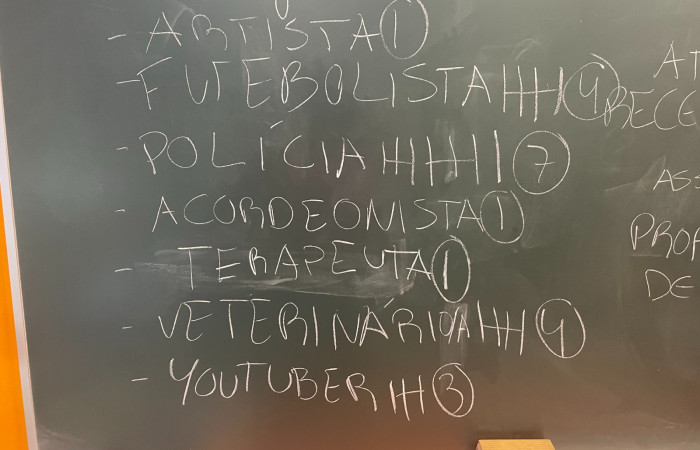 - ARTISTA 1
- FUTEBOLISTA |||| 4
- POLÍCIA ||||||| 7
- ACORDEONISTA 1
- TERAPEUTA 1
- VETERINÁRIO/A |||| 4
- YOUTUBER ||| 3
AT
RECE
AS
PROF
DE